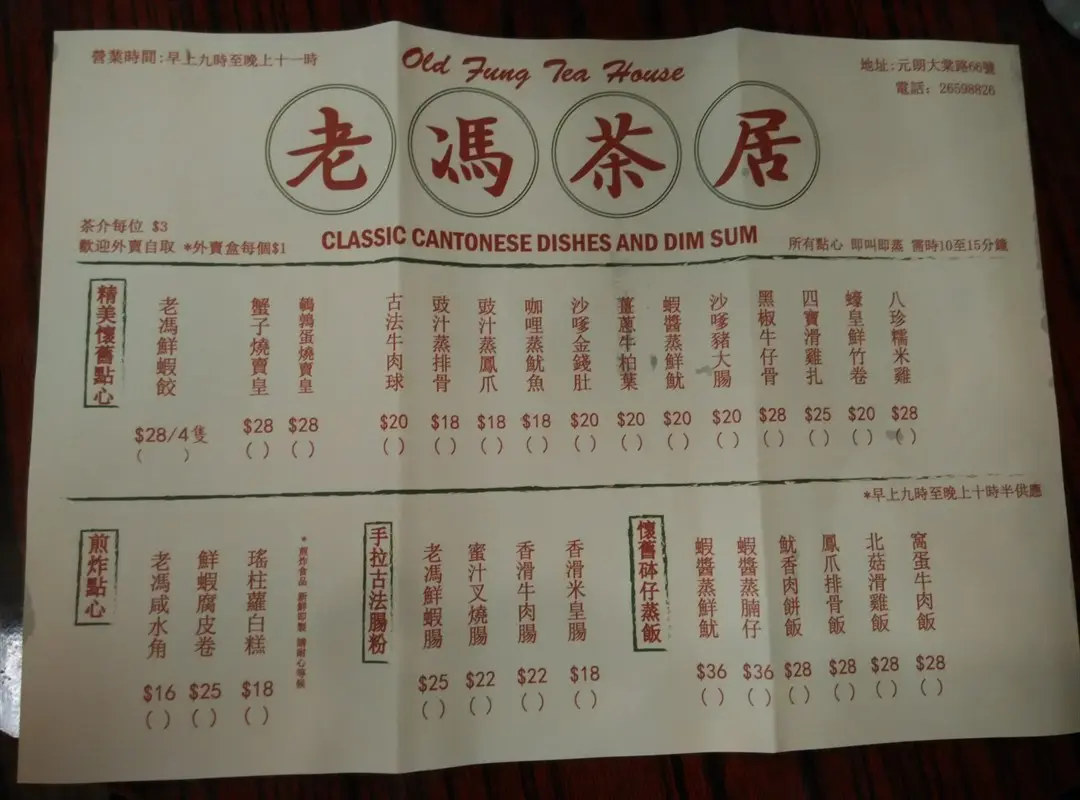 營業時間:早上九時至晚上十一時
Old Fung Tea House
地址:元朗大業路66號
電話: 26598826
老馮茶居
茶介每位 $3
歡迎外賣自取 *外賣盒每個$1
CLASSIC CANTONESE DISHES AND DIM SUM
所有點心 即叫即蒸 需時10至15分鐘
精美懷舊點心
老馮鮮蝦餃 $28/4隻 ( )
蟹子燒賣皇 $28 ( )
鵪鶉蛋燒賣皇 $28 ( )
古法牛肉球 $20 ( )
豉汁蒸排骨 $18 ( )
豉汁蒸鳳爪 $18 ( )
咖哩蒸魷魚 $18 ( )
沙嗲金錢肚 $20 ( )
薑蔥牛柏葉 $20 ( )
蝦醬蒸鮮魷 $20 ( )
沙嗲豬大腸 $20 ( )
黑椒牛仔骨 $28 ( )
四寶滑雞扎 $25 ( )
蠔皇鮮竹卷 $20 ( )
八珍糯米雞 $28 ( )
*早上九時至晚上十時半供應
煎炸點心
老馮咸水角 $16 ( )
鮮蝦腐皮卷 $25 ( )
瑤柱蘿白糕 $18 ( )
*煎炸食品 新鮮即製 請耐心等候
手拉古法腸粉
老馮鮮蝦腸 $25 ( )
蜜汁叉燒腸 $22 ( )
香滑牛肉腸 $22 ( )
香滑米皇腸 $18 ( )
懷舊砵仔蒸飯
蝦醬蒸鮮魷 $36 ( )
蝦醬蒸腩仔 $36 ( )
魷香肉餅飯 $28 ( )
鳳爪排骨飯 $28 ( )
北菇滑雞飯 $28 ( )
窩蛋牛肉飯 $28 ( )